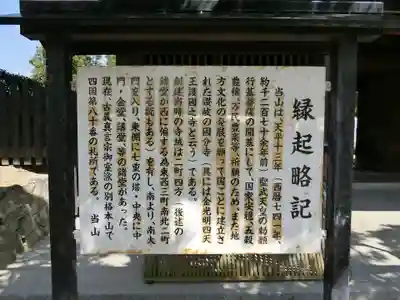 縁起略記
当山は、天平十三年(西暦七四一年、
約千二百七十余年前)聖武天皇の勅願
行基菩薩の開基にして、国家安穏、五穀
豊穣、万民豊楽等、祈願のため、また地
方文化の発展を願って国ごとに建立さ
れた讃岐の国分寺(具には金光明四天
王護国之寺と云う)である。
創建当時の寺域は二町四方(後述の
諸堂が西に偏する為東西三町南北二町
とする説もある)を有し、南より、南大
門を入り、東側に七重の塔・中央に中
門・金堂・講堂・等の諸堂があった。
現在、古義真言宗御室派の別格本山で
四国第八十番の札所である。 当山